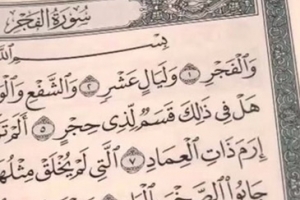 سُورَةُ الفَجْرِ
بِسْمِ ٱللَّهِ
وَٱلْفَجْرِ ١ وَلَيَالٍ عَشْرٍ ٢ وَٱلشَّفْعِ
هَلْ فِي ذَٰلِكَ قَسَمٌ لِّذِي حِجْرٍ ٥ أَلَمْ
إِرَمَ ذَاتِ ٱلْعِمَادِ ٧ ٱلَّتِي لَمْ يُخْلَقْ مِثْلُهَا
جَابُوا۟ ٱلصَّخْرَ